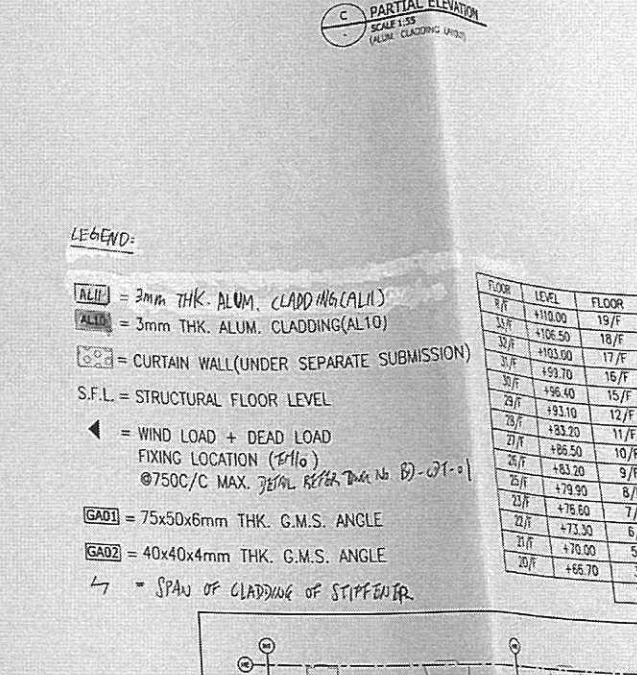 C PARTIAL ELEVATION
- SCALE 1:55
(ALUM. CLADDING LAYOUT)
LEGEND:
AL11 = 3mm THK. ALUM. CLADDING(AL11)
AL10 = 3mm THK. ALUM. CLADDING(AL10)
= CURTAIN WALL(UNDER SEPARATE SUBMISSION)
S.F.L. = STRUCTURAL FLOOR LEVEL
= WIND LOAD + DEAD LOAD
FIXING LOCATION
@750C/C MAX. DETAIL REFER No.
GA01 = 75x50x6mm THK. G.M.S. ANGLE
GA02 = 40x40x4mm THK. G.M.S. ANGLE
= SPAN OF CLADDING OF STIFFENER
FLOOR LEVEL FLOOR
R/F +110.00 19/F
33/F +106.50 18/F
32/F +103.00 17/F
31/F +99.70 16/F
30/F +96.40 15/F
29/F +93.10 12/F
28/F 11/F
27/F +86.50 10/F
26/F +83.20 9/F
25/F +79.90 8/
23/F +76.60 7/
22/F +73.30 6
21/F +70.00 5
20/F +66.70